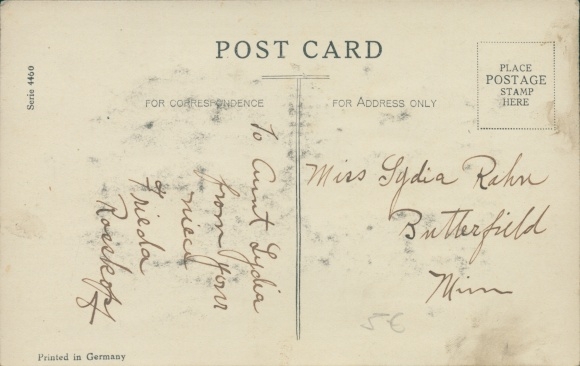 POST CARD
Serie 4460
FOR CORRESPONDENCE
FOR ADDRESS ONLY
PLACE
POSTAGE
STAMP
HERE
To Aunt Lydia
from your
niece
Frieda
Rosskopf
Miss Lydia Rahn
Butterfield
Minn
5€
Printed in Germany